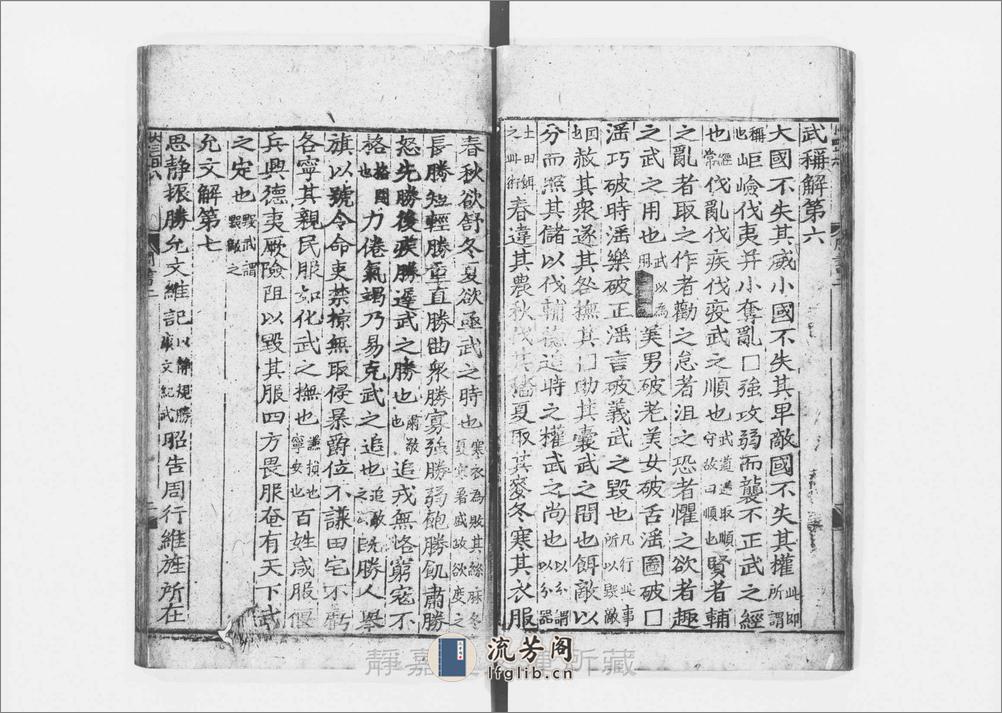 武稱解第六
大國不失其威小國不失其卑敵國不失其權此即所謂
稱也岠嶮伐夷并小奪亂□強攻弱而襲不正武之經
也經常伐亂伐疾伐疫武之順也武道逆取順守故曰順也賢者輔
之亂者取之作者勸之怠者沮之恐者懼之欲者趣
之武之用也武以為用美男破老美女破舌淫圖破□
淫巧破時淫樂破正淫言破義武之毀也凡行此事所以毀敵
也因赦其衆遂其咎撫其□助其囊武之間也餌敵以
分而照其儲以伐輔德追時之權武之尚也
春違其農秋伐其穡夏取其麥冬寒其衣服
春秋欲舒冬夏欲亟武之時也寒衣為敗其絲麻冬
長勝短輕勝重直勝曲衆勝寡強勝弱飽勝飢肅勝
怒先勝後疾勝遲武之勝也追戎無恪窮寇不
格力倦氣竭乃易克武之追也追敵之既勝人舉
旗以號令命吏禁掠無取侵暴爵位不謙田宅不虧
各寧其親民服如化武之撫也寧安也百姓咸服偃
兵興德夷厥險阻以毀其服四方畏服奄有天下武
之定也
允文解第七
思靜振勝允文維記昭告周行維旌所在
流芳阁
lfglib.cn
靜嘉所藏